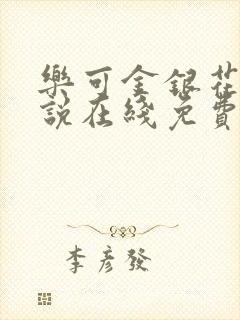 樂可金銀花
說在綫免費
李彥發